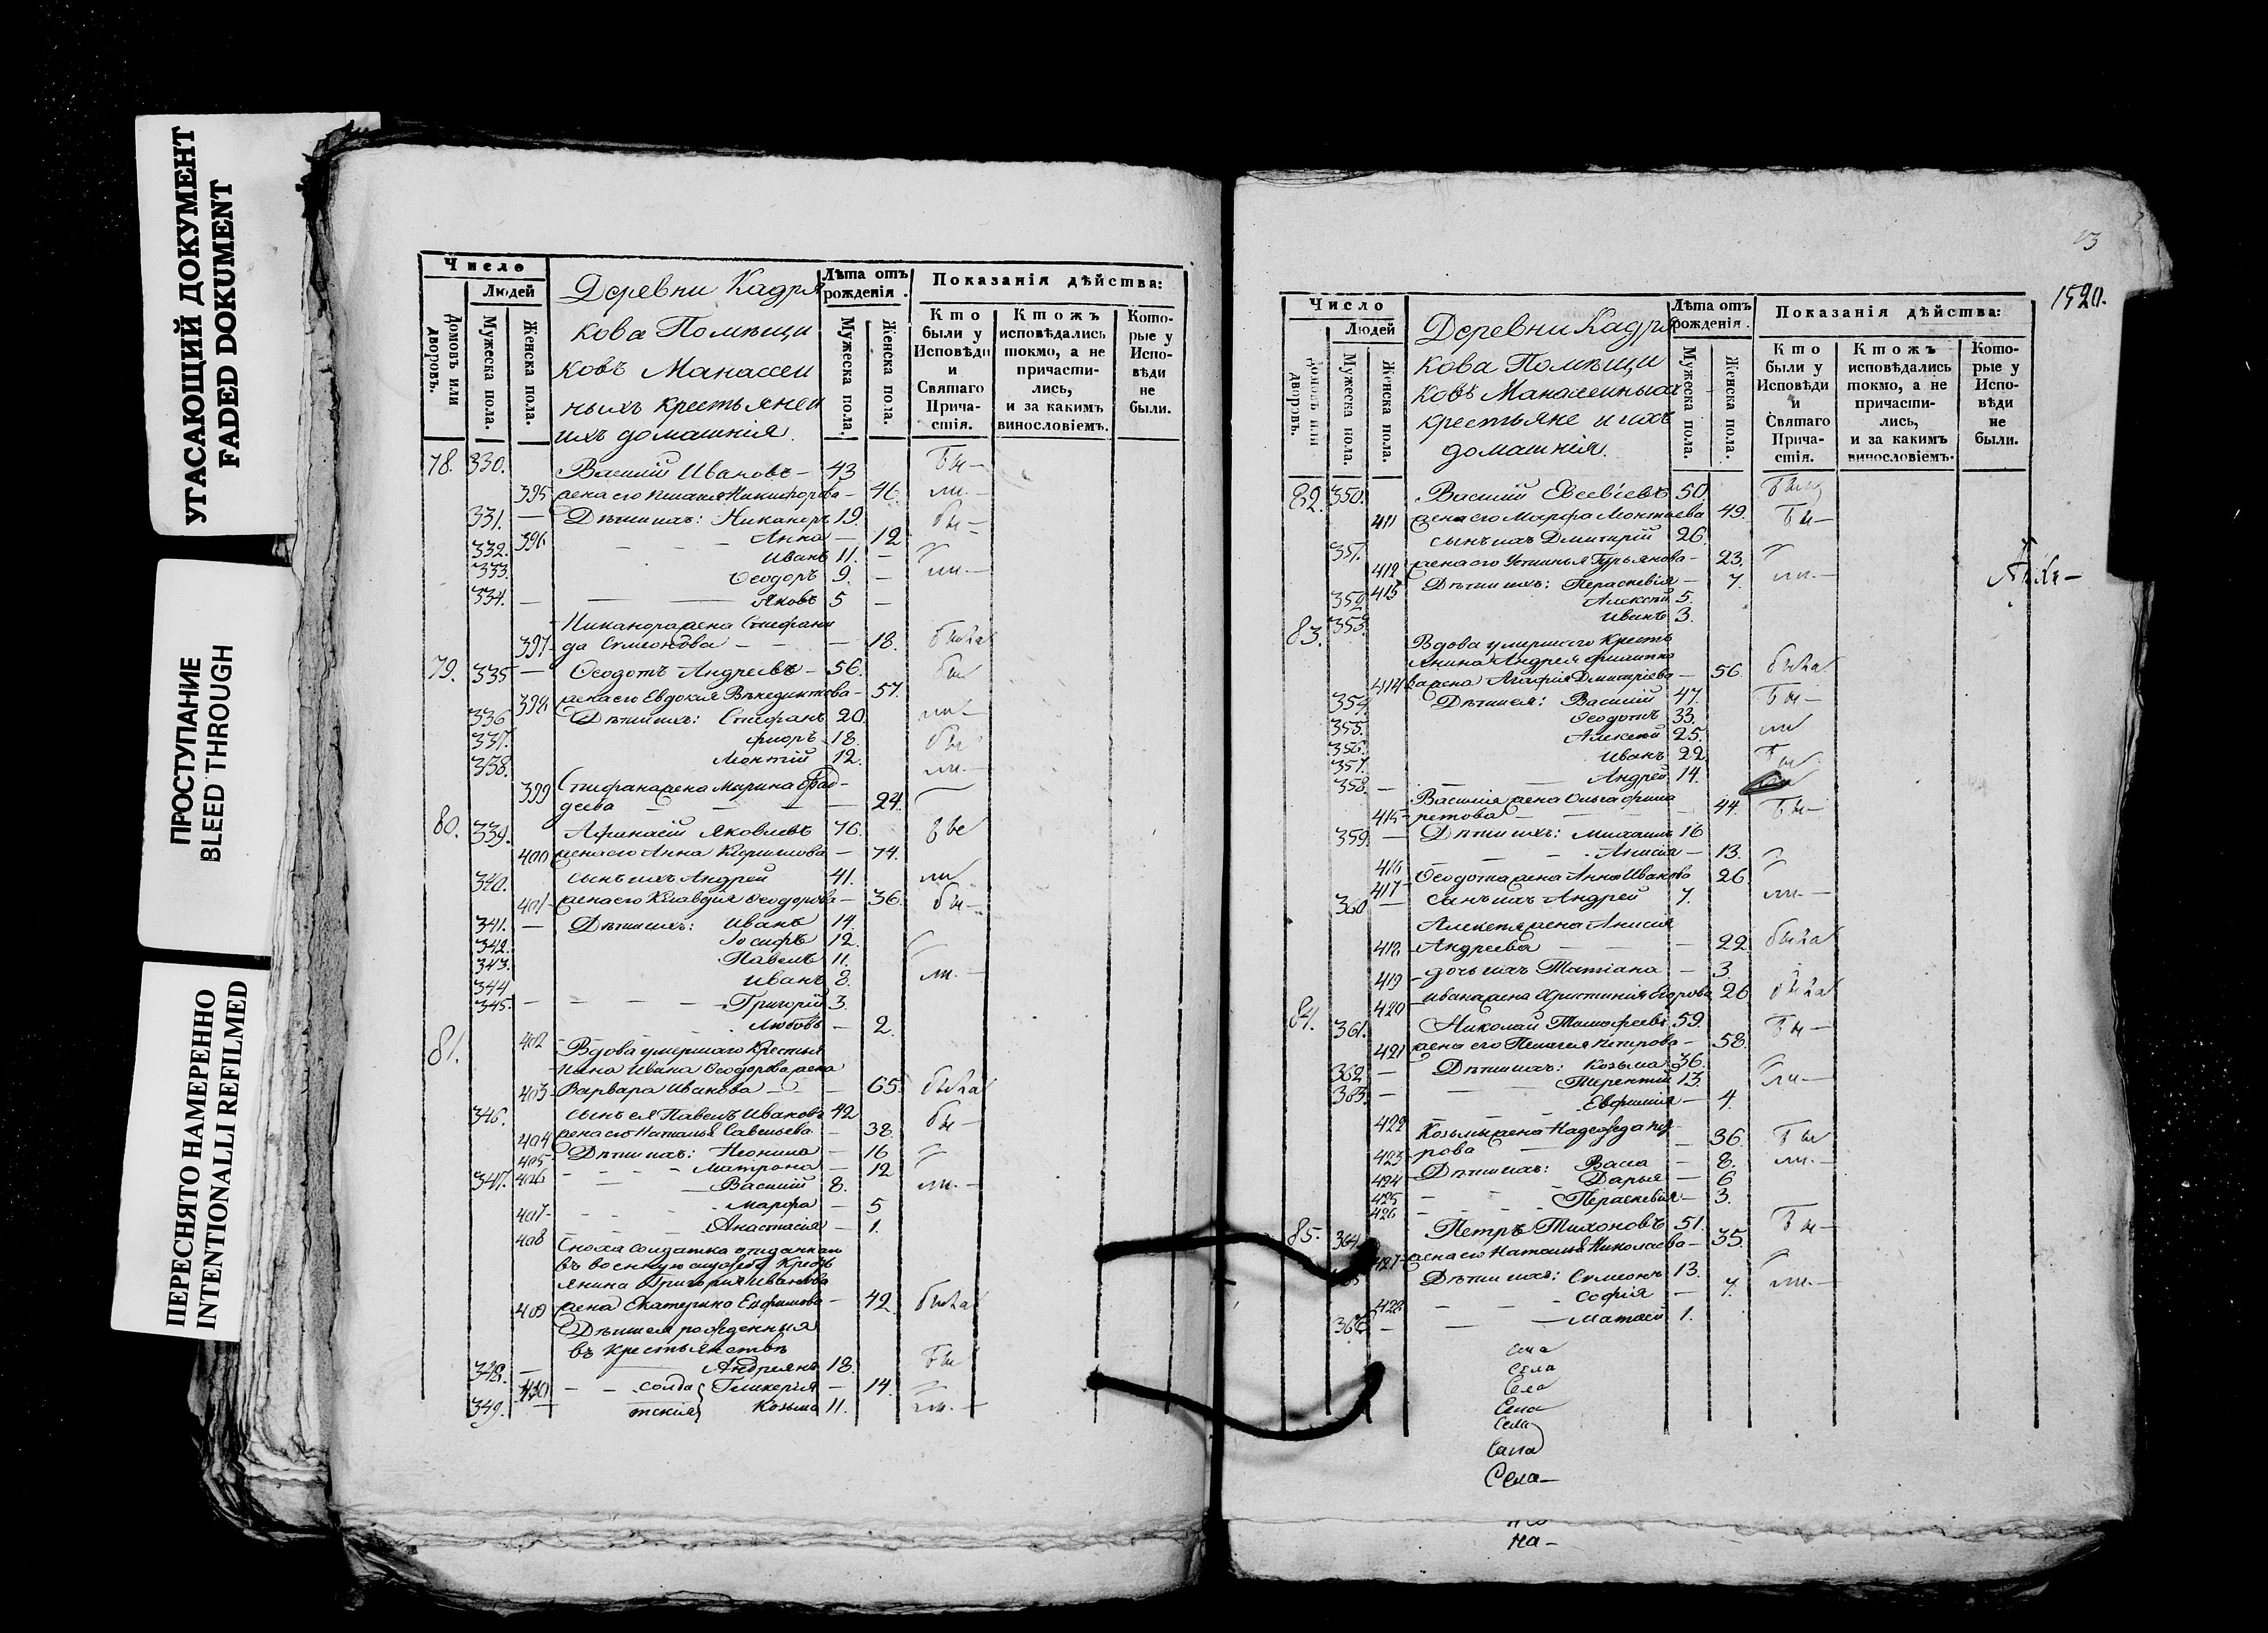 УГАСАЮЩИЙ ДОКУМЕНТ
FADED DOKUMENT
ПРОСТУПАНИЕ
BLEED THROUGH
ПЕРЕСНЯТО НАМЕРЕННО
INTENTIONALLI REFILMED
Число
Людей
Домовъ или дворовъ.
Мужеска пола.
Женска пола.
Деревни Кадря
кова Помѣщи
ковъ Манассеи
ныхъ крестьяне и
ихъ домашнія.
Лѣта отъ рожденія.
Мужеска пола.
Женска пола.
Показанія дѣйства:
Кто были у Исповѣди и Святаго Прича- стія.
Ктожъ исповѣдались токмо, а не причасти- лись, и за какимъ винословіемъ.
Кото- рые у Испо- вѣди не были.
78. 330. Василій Ивановъ 43 бы
395 жена его Пелагея Никифорова 46. ли.
331. Дѣти ихъ: Никаноръ 19. бы
396 Анна 12
332. Иванъ 11.
333. Ѳеодоръ 9. ли.
334. Яковъ 5
Никанора жена Стефани
397 да Симеонова 18. была
79. 335 Ѳеодотъ Андреевъ 56. бы
398 жена его Евдокия Венедиктова 57.
336 Дѣти ихъ: Стефанъ 20. ли
337. Флоръ 18. бы
338. Леонтій 12. ли.
399 Стефана жена Марина Фад-
деева 24.
80. 339. Афанасій Яковлевъ 76. бы
400 жена его Анна Кириллова 74.
340. сынъ ихъ Андрей 41. ли
401 жена его Клавдія Ѳеодорова 36. бы
341. Дѣти ихъ: Иванъ 14.
342. Іосифъ 12.
343. Павелъ 11.
344 Иванъ 8. ли.
345. Григорій 3.
402 Любовь 2.
81. Вдова умершаго крестья
нина Ивана Ѳеодорова жена
403 Варвара Иванова 65. была
346. сынъ ея Павелъ Ивановъ 42 бы
404 жена его Наталья Савельева 38.
405 Дѣти ихъ: Неонила 16
406 Матрона 12
347. Василій 8. ли.
407 Марфа 5
408 Анастасія 1.
Сноха солдатка отданнаго
въ военную службу крестья
янина Григорія Иванова
409 жена Екатерина Ефимова 42. была
Дѣти ея рожденныя
въ крестьянствѣ
348. Андреянъ 18. бы
410 солда Гликерія 14.
349. тскія Козьма 11. ли.
1520.
Число
Людей
Домовъ или дворовъ.
Мужеска пола.
Женска пола.
Деревни Кадря
кова Помѣщи
ковъ Манассеиныхъ
крестьяне и ихъ
домашнія.
Лѣта отъ рожденія.
Мужеска пола.
Женска пола.
Показанія дѣйства:
Кто были у Исповѣди и Святаго Прича- стія.
Ктожъ исповѣдались токмо, а не причасти- лись, и за какимъ винословіемъ.
Кото- рые у Испо- вѣди не были.
82. 350. Василій Евсевіевъ 50.
411 жена его Марфа Леонтьева 49. бы
351. сынъ ихъ Дмитрій 26.
412 жена его Устинья Гурьянова 23.
413 Дѣти ихъ: Параскевія 7. ли.
352 Алексѣй 5.
353. Иванъ 3.
83. Вдова умершаго кресть
янина Андрея Филиппо
414 ва жена Агафия Дмитріева 56 была
354. Дѣти ея: Василій 47. бы
355. Ѳеодотъ 33.
356. Алексѣй 25. ли
357. Иванъ 22. бы
358. Андрей 14.
Василія жена Ольга Фила
415 ретова 44. бы
359. Дѣти ихъ: Михаилъ 16
416 Анисія 13.
417 Ѳеодота жена Анна Иванова 26
360 сынъ ихъ Андрей 7. ли.
Алексѣя жена Анисия
418 Андреева 22 была
419 дочь ихъ Татіана 3.
420 Ивана жена Христинія Егорова 26 была
84. 361. Николай Тимофеевъ 59. бы
421 жена его Пелагея Петрова 58.
362 Дѣти ихъ: Козьма 36.
363. Терентій 13. ли
422 Евфимія 4.
Козьмы жена Надежда Пет-
423 рова 36. бы
424 Дѣти ихъ: Васса 8. ли.
425 Дарья 6
426 Параскевія 3.
85. 364. Петръ Тихоновъ 51. бы
427 жена его Наталья Николаева 35.
Дѣти ихъ: Симеонъ 13.
428 Софія 7. ли.
366 Матѳей 1.
Села
Села
Села
Села
Села
Села
На-